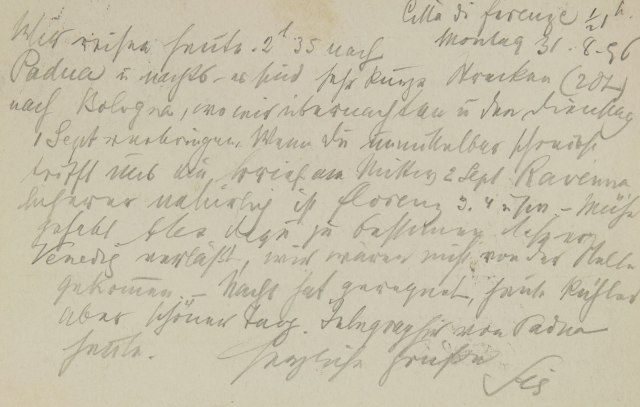 Città di Firenze ½1ʰ
Montag 31.8.96
Wir reisen heute 2ʰ 35 nach
Padua u nachts - es sind sehr kurze Strecken
nach Bologna, wo wir übernachten u den Dienstag
1 Sept verbringen. Wenn du unmittelbar schreibst
trifft uns die am 2 Sept Ravenna
natürlich ist Florenz 3. 4
gesehen Alex zu bestimmen daß er
Venedig verläßt, wir wären nicht von der Stelle
gekommen. - Nachts hat geregnet, heute kühler
aber schöner Tag. Telegraphir von Padua
heute. herzliche Grüße